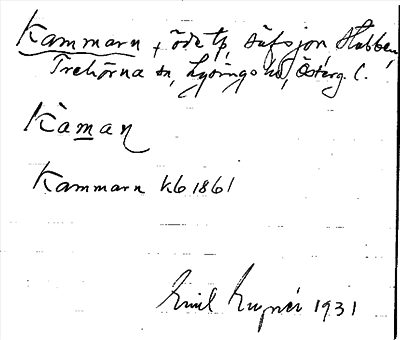 Kammarn, öde tp, Säfsjön, Stabben,
Trehörna sn, Lysings hd, Österg. l.
Kàman
Kammarn kb 1861
Emil 1931